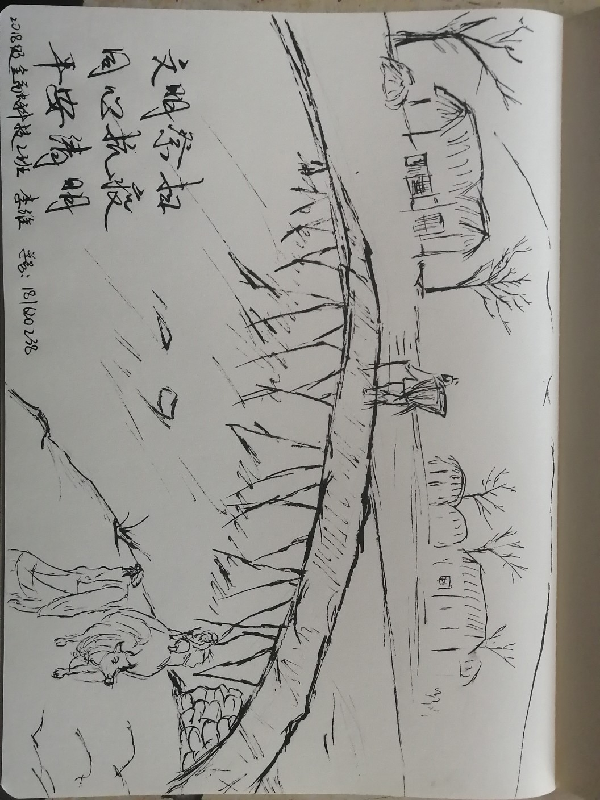 文明祭扫
同心抗疫
平安清明
2018级金融科技2班 李维 学号: